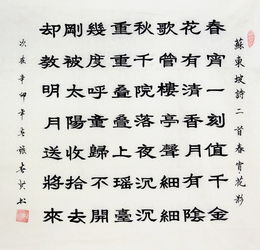 蘇東坡詩二首春宵花影
春宵一刻值千金
花有清香月有陰
歌管樓亭聲細細
秋千院落夜沉沉
重重叠叠上瑤臺
幾度呼童掃不開
剛被太陽收拾去
却教明月送將來
辛卯年春